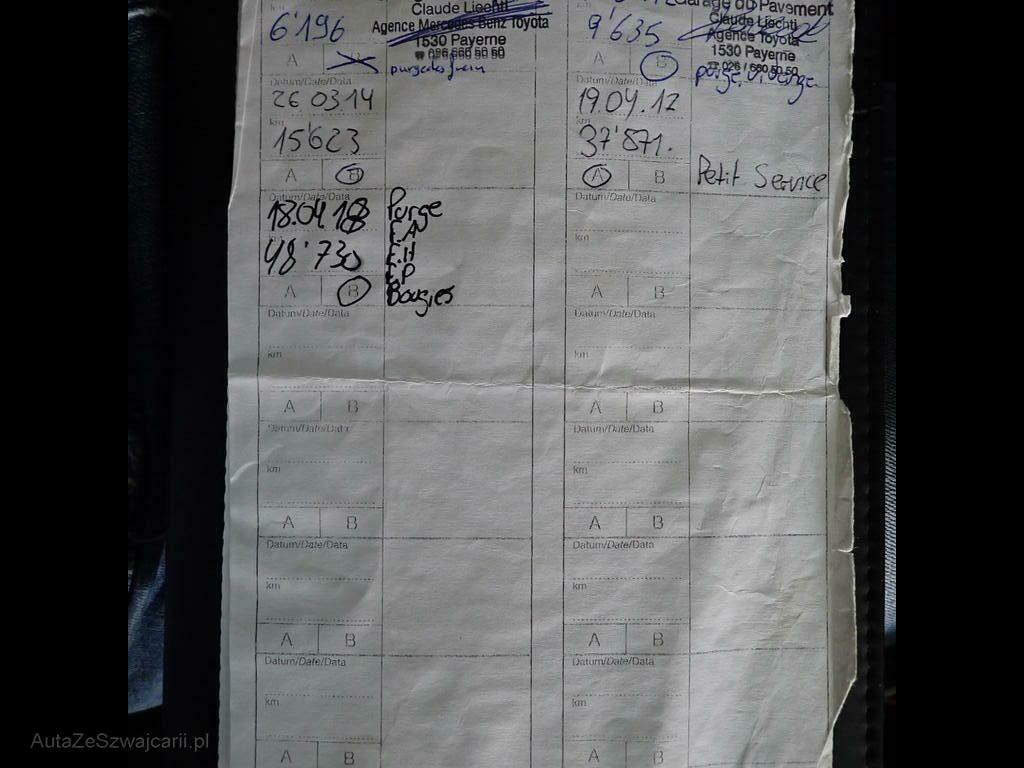 Claude Liechti
6'196
Agence Mercedes Benz Toyota
1530 Payerne
☎ 026 660 50 50
A
Datum/Date/Data
26.03.14
km
15'623
A B
Datum/Date/Data
18.04.18
48'730
A B
Purge
E.H
E.P
Bougies
Datum/Date/Data
km
A B
Datum/Date/Data
km
A B
Datum/Date/Data
km
A B
Datum/Date/Data
km
A B
Garage du Pavement
Claude Liechti
9'635
Agence Toyota
1530 Payerne
☎ 026 / 660 50 50
A B
Datum/Date/Data
19.04.17
km
37'871.
A B
Petit Service
Datum/Date/Data
km
A B
Datum/Date/Data
km
A B
Datum/Date/Data
km
A B
Datum/Date/Data
km
A B
Datum/Date/Data
km
A B
AutaZeSzwajcarii.pl